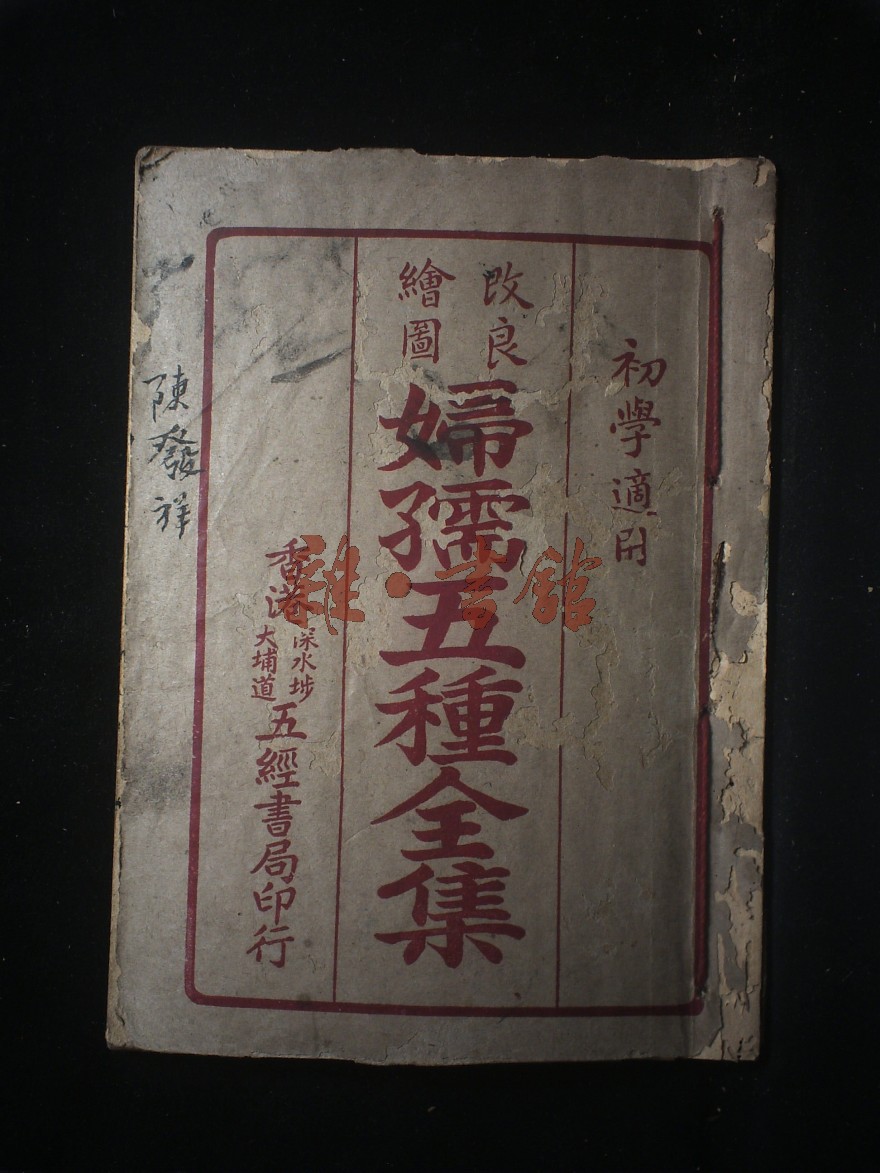 初學適用
改良
繪圖
婦孺五種全集
香港
深水埗
大埔道
五經書局印行
陳發祥
雜·書館